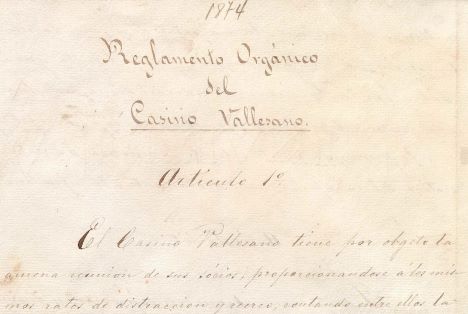 1874
Reglamento Orgánico
del
Casino Vallesano.
Artículo 1º
El Casino Vallesano tiene por objeto la
amena reunión de sus sócios, proporcionandose á los mis-
mos ratos de distraccion y recreo, contando entre ellos la